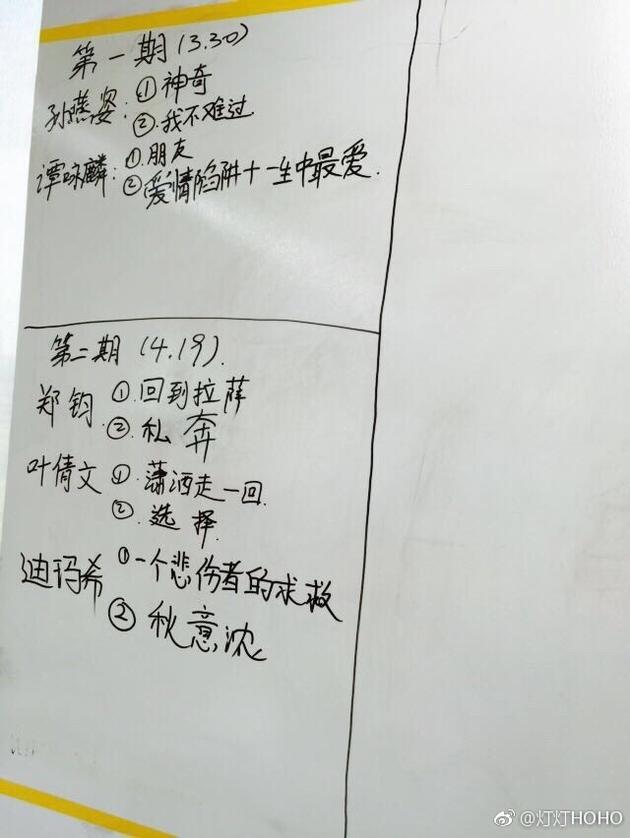 第一期(3.30)
孙燕姿：①神奇
②.我不难过
谭咏麟：①.朋友
②爱情陷阱+一生中最爱.
第二期(4.19).
郑钧.①.回到拉萨
②.私奔
叶倩文①.潇洒走一回.
②.选择.
迪玛希①一个悲伤者的求救
②秋意浓
@灯灯HOHO